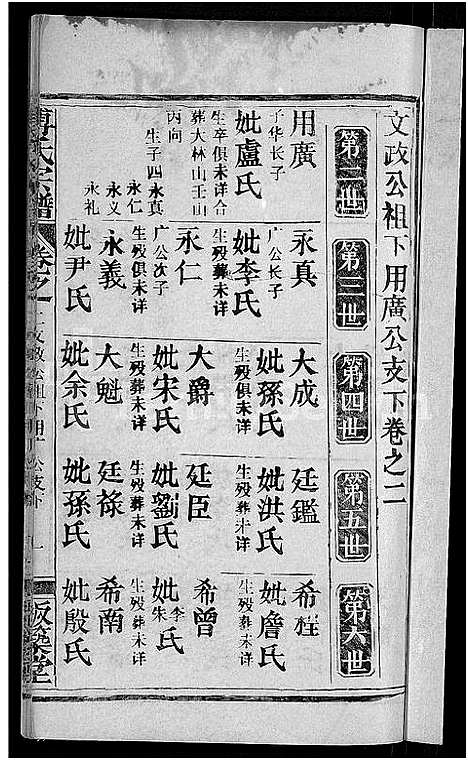 文政公祖下用廣公支下卷之二
第二世
用廣
子华长子
妣盧氏
生卒俱未详合
葬大林山壬山
丙向
生子四永真
永仁
永义
永礼
第三世
永真
广公长子
妣李氏
生殁俱未详
永仁
广公次子
生殁俱未详
永義
妣尹氏
第四世
大成
妣孫氏
生殁俱未详
大爵
妣宋氏
生殁葬未详
大魁
妣余氏
第五世
廷鑑
妣洪氏
生殁葬未详
廷臣
妣劉氏
生殁葬未详
廷禄
妣孫氏
第六世
希程
妣詹氏
生殁葬未详
希曾
妣李朱氏
生殁葬未详
希南
妣殷氏
氏宗譜
卷之一
版築堂